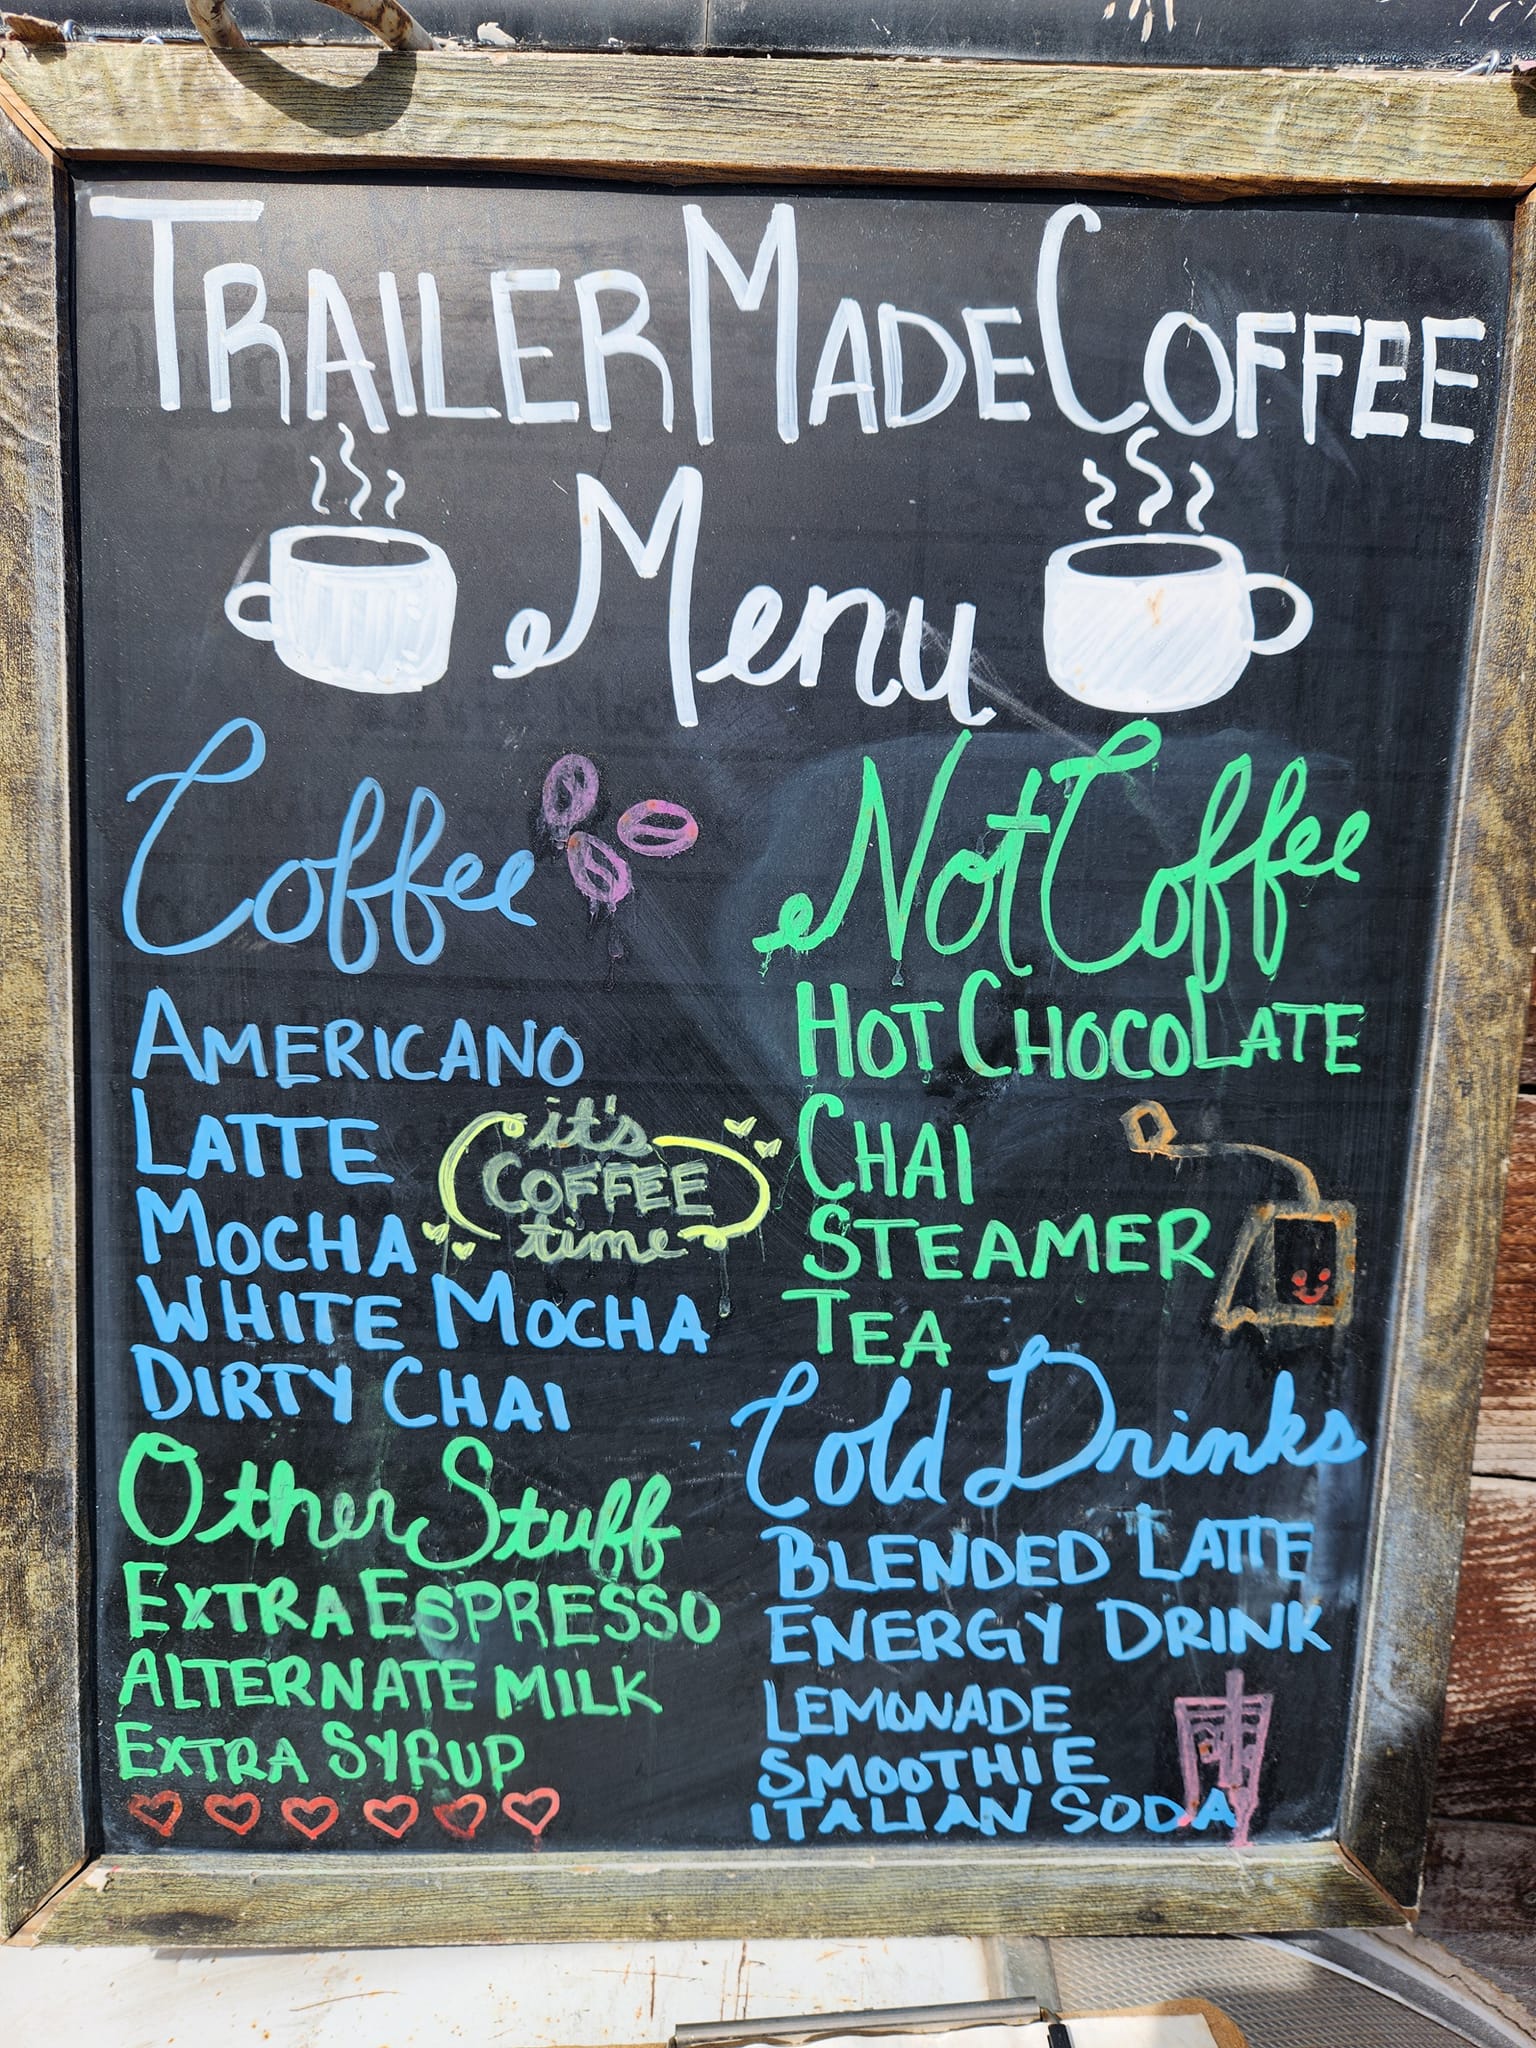 TRAILER MADE COFFEE
Menu
Coffee
AMERICANO
LATTE
MOCHA
WHITE MOCHA
DIRTY CHAI
it's
COFFEE
time
Other Stuff
EXTRA ESPRESSO
ALTERNATE MILK
EXTRA SYRUP
Not Coffee
HOT CHOCOLATE
CHAI
STEAMER
TEA
Cold Drinks
BLENDED LATTE
ENERGY DRINK
LEMONADE
SMOOTHIE
ITALIAN SODA